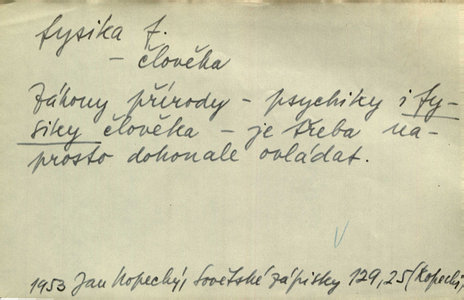 fysika f.
– člověka
Zákony přírody – psychiky i fy-
siky člověka – je třeba na-
prosto dokonale ovládat.
1953 Jan Kopecký, Sovětské zápisky 129, 25 (Kopecký)